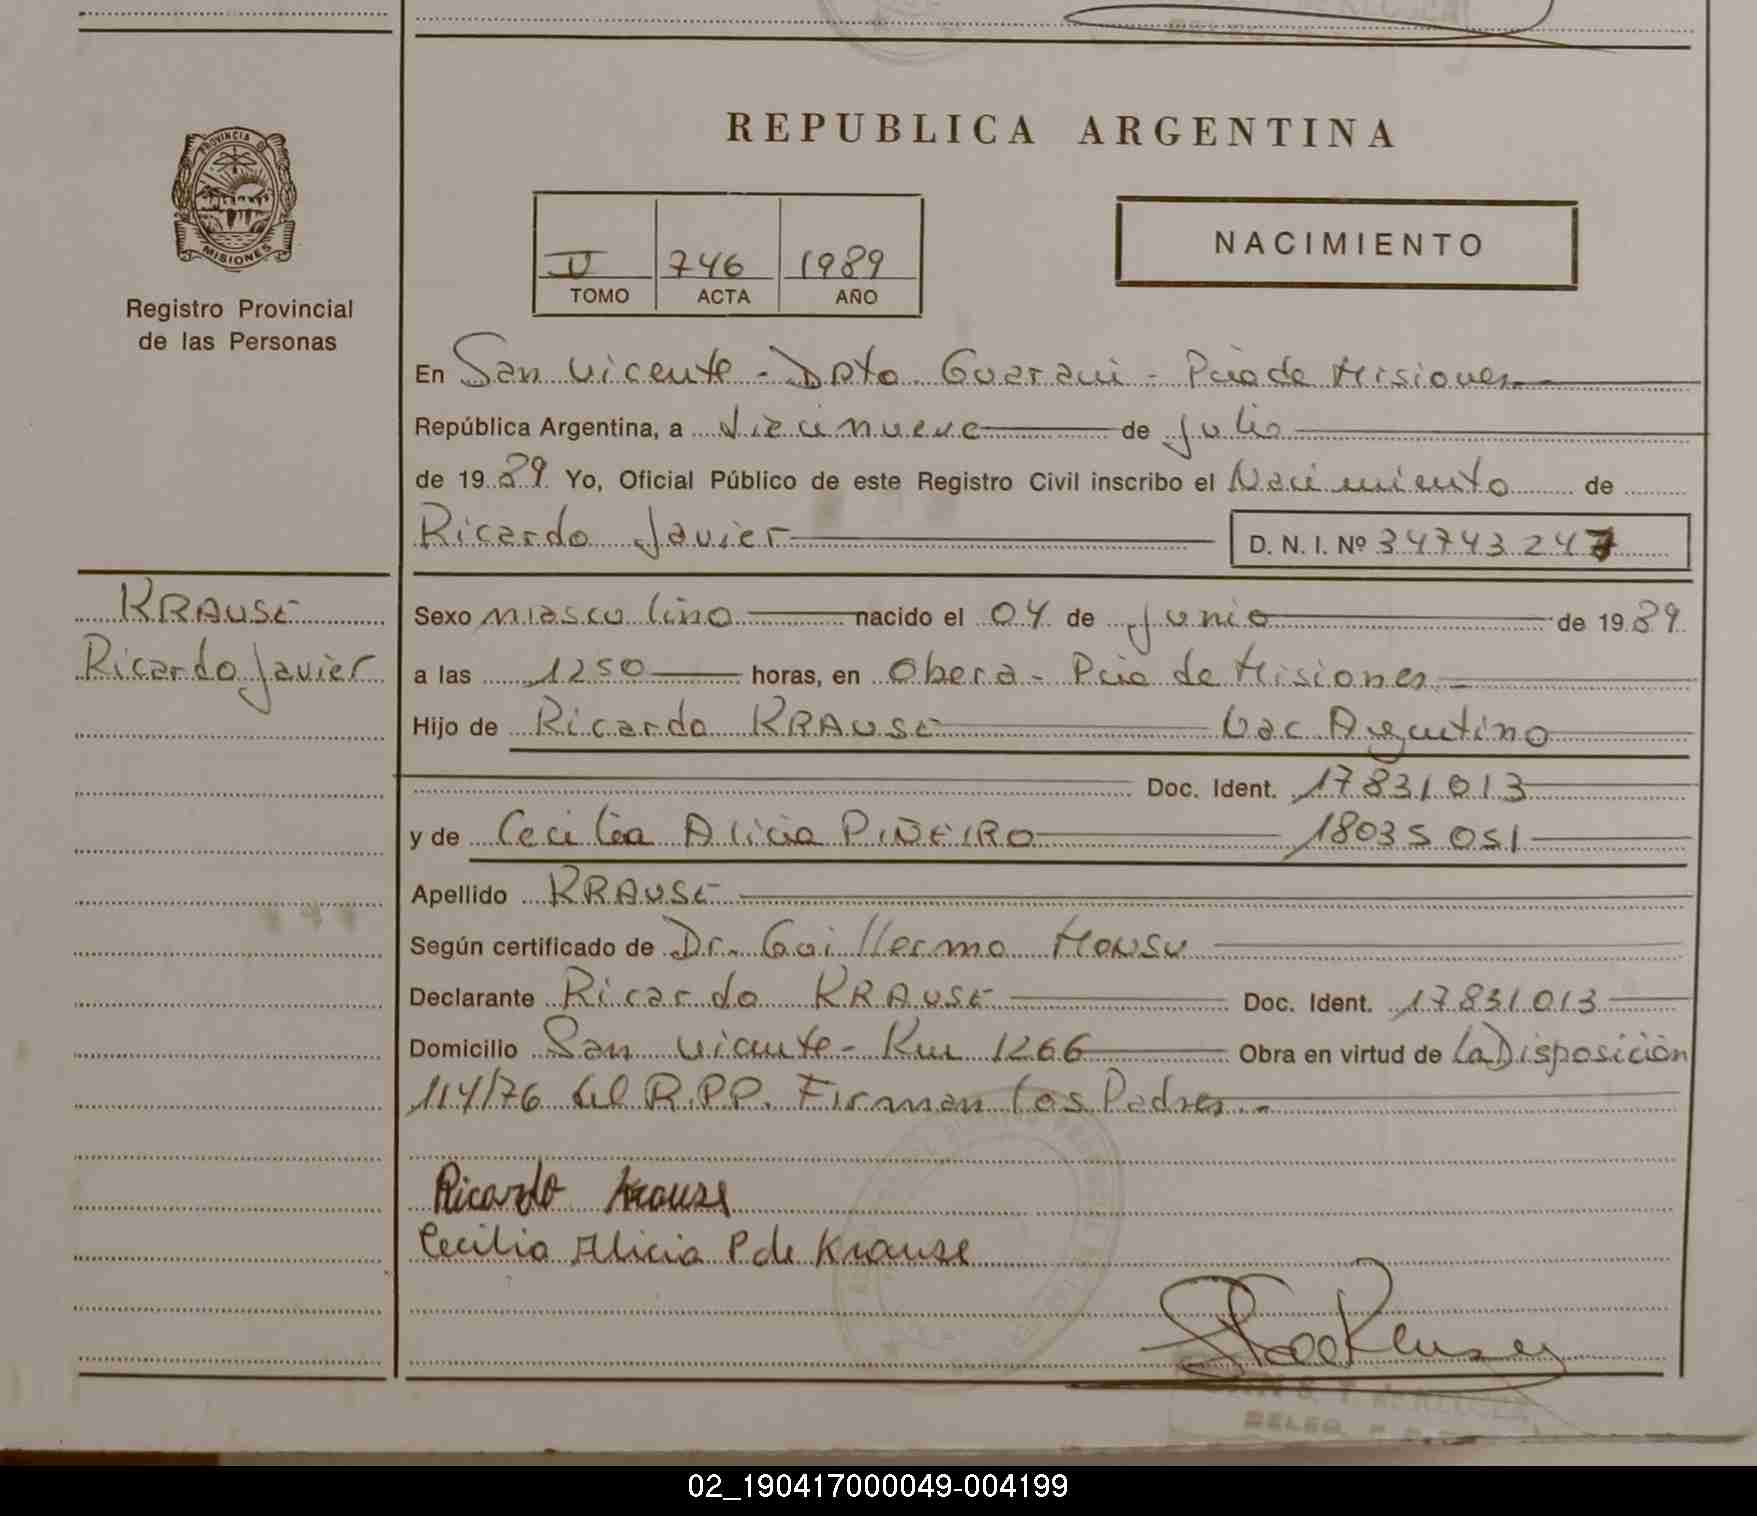 REPUBLICA ARGENTINA
PROVINCIA D
MISIONES
Registro Provincial
de las Personas
II 746 1989
TOMO ACTA AÑO
NACIMIENTO
En San Vicente - Dpto Guarani - Pcia de Misiones
República Argentina, a diecinueve de Julio
de 19 89 Yo, Oficial Público de este Registro Civil inscribo el Nacimiento de
Ricardo Javier D. N. I. Nº 34743247
KRAUSE
Ricardo Javier
Sexo masculino nacido el 04 de Junio de 19 89
a las 1250 horas, en Obera - Pcia de Misiones
Hijo de Ricardo KRAUSE Nac Argentino
Doc. Ident. 17831013
y de Cecilia Alicia PIÑEIRO 18035051
Apellido KRAUSE
Según certificado de Dr. Guillermo
Declarante Ricardo KRAUSE Doc. Ident. 17831013
Domicilio San Vicente - Km 1266 Obra en virtud de La Disposición
114/76 del R.P.P. Firman los Padres.-
Ricardo Krause
Cecilia Alicia P de Krause
DELEG.
02_190417000049-004199